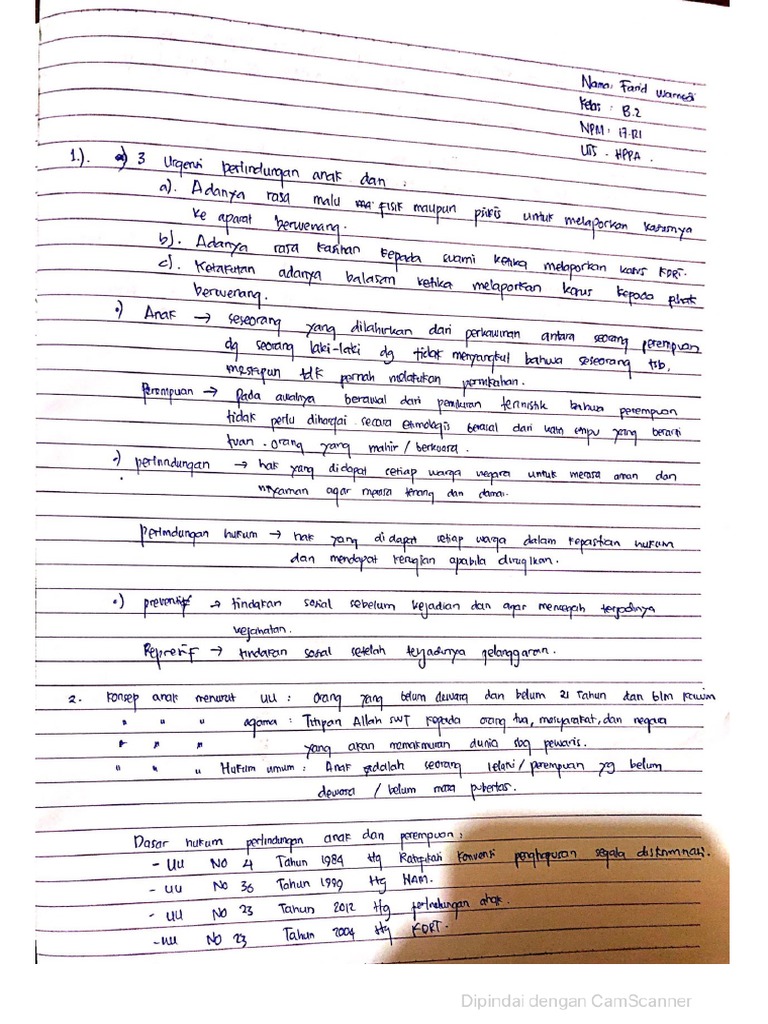 Nama: Farid Warnedi
Kelas : B.2
NPM : 17.RI
UTS - HPPA .
1.). a) 3 Urgensi perlindungan anak dan :
a). Adanya rasa malu ma. fisik maupun psikis untuk melaporkan kasusnya
ke aparat berwenang.
b). Adanya rasa kasihan kepada suami ketika melaporkan kasus KDRT.
c). Ketakutan adanya balasan ketika melaporkan kasus kepada pihak
berwenang.
•) Anak → seseorang yang dilahirkan dari perkawinan antara seorang perempuan
dg seorang laki-laki dg tidak menyangkut bahwa seseorang tsb,
meskipun tdk pernah melakukan pernikahan.
Perempuan → pada awalnya berawal dari pemikiran feministik bahwa perempuan
tidak perlu dihargai secara etimologis berasal dari kata empu yang berarti
tuan . orang yang mahir / berkuasa .
•) perlindungan → hak yang didapat setiap warga negara untuk merasa aman dan
nyaman agar merasa tenang dan damai.
Perlindungan hukum → hak yang di dapat setiap warga dalam kepastian hukum
dan mendapat kerugian apabila dirugikan.
•) preventif → tindakan sosial sebelum kejadian dan agar mencegah terjadinya
kejahatan.
Represif → tindakan sosial setelah terjadinya pelanggaran.
2. Konsep anak menurut UU : orang yang belum dewasa dan belum 21 Tahun dan blm kawin
" " " agama : Titipan Allah SWT kepada orang tua, masyarakat, dan negara
" " " yang akan memakmuran dunia sbg pewaris.
" " " Hukum umum : Anak adalah seorang lelaki / perempuan yg belum
dewasa / belum masa pubertas.
Dasar hukum perlindungan anak dan perempuan :
- UU No 4 Tahun 1984 ttg Ratifikasi Konvensi penghapusan segala diskriminasi.
- UU No 36 Tahun 1999 ttg HAM.
- UU No 23 Tahun 2012 ttg perlindungan anak.
- UU No 23 Tahun 2004 ttg KDRT.
Dipindai dengan CamScanner